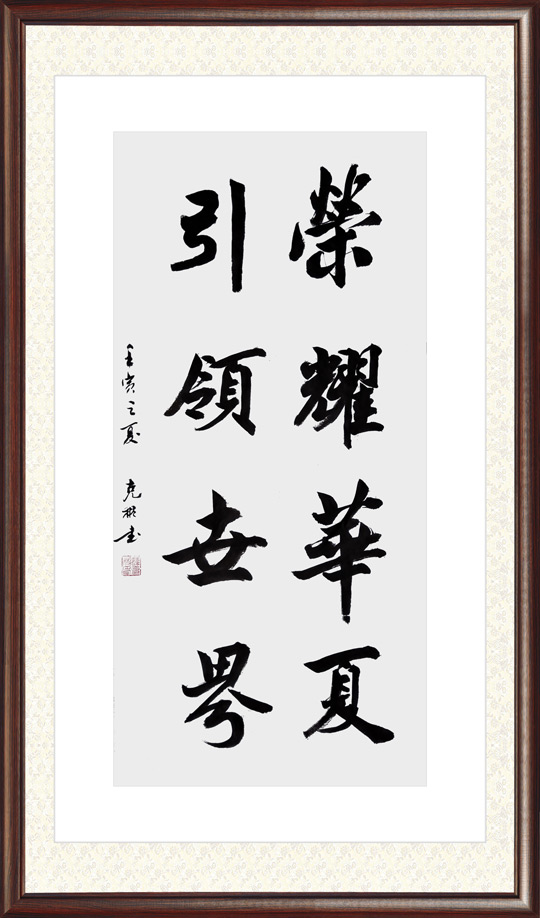 榮耀華夏
引領世界
壬寅之夏 克彬书